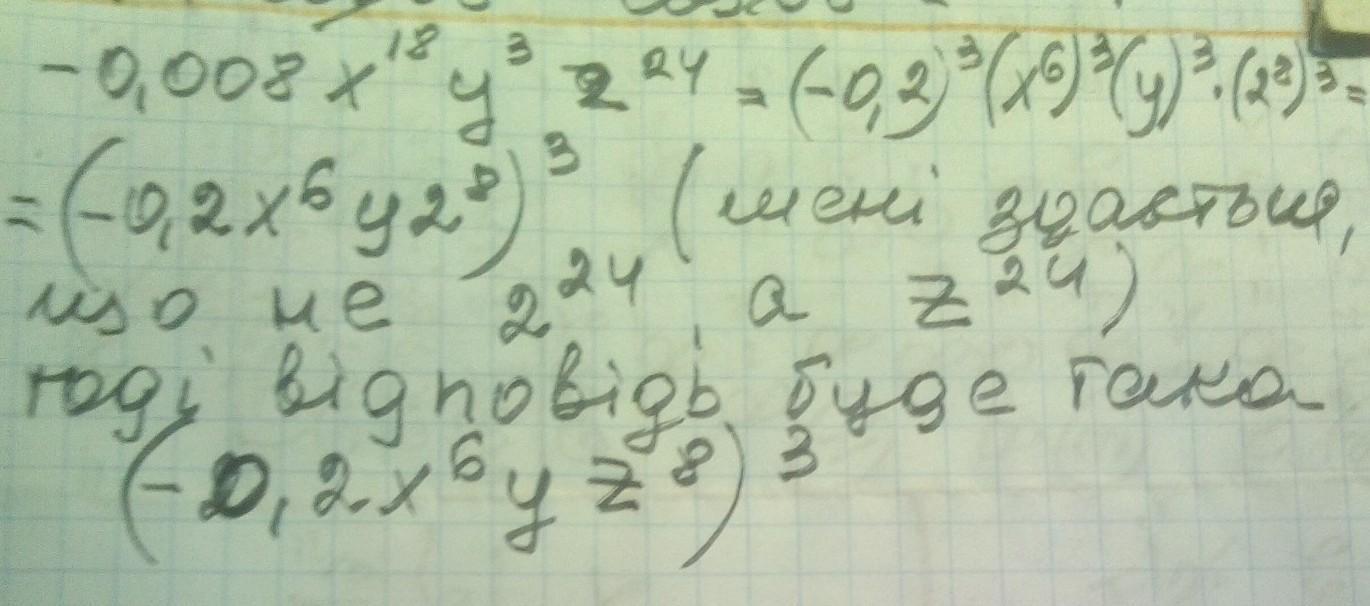 -0,008 x¹⁸ y³ 2²⁴ = (-0,2)³ (x⁶)³ (y)³ · (2⁸)³ =
= (-0,2 x⁶ y 2⁸)³ (мені здається,
що не 2²⁴, а z²⁴)
тоді відповідь буде така
(-0,2 x⁶ y z⁸)³